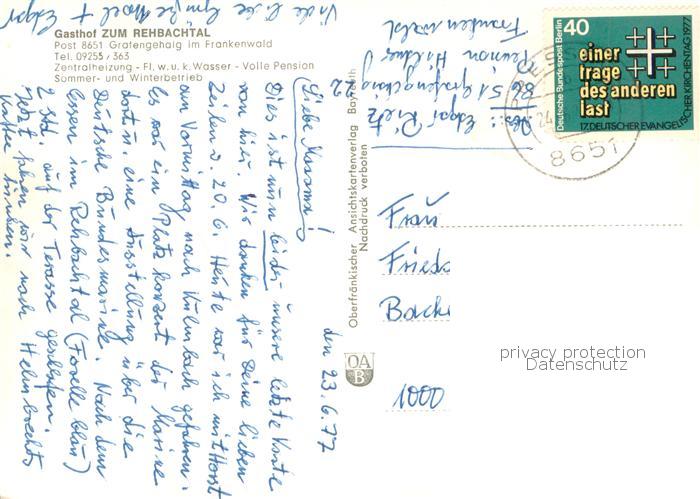 Gasthof ZUM REHBACHTAL
Post 8651 Grafengehaig im Frankenwald
Tel. 09255 / 363
Zentralheizung - Fl. w. u. k. Wasser - Volle Pension
Sommer- und Winterbetrieb
den 23.6.77
Liebe Mamma!
Dies ist nun leider unsere letzte Karte
von hier. Wir danken für Deine lieben
Zeilen v. 20.6. Heute war ich mit Horst
am Vormittag nach Kulmbach gefahren.
Es war ein Platzkonzert der Marine
dortu eine Ausstellung über die
Deutsche Bundesmarine. Nach dem
Essen im Rehbachtal (Forelle blau)
2 Std. auf der Terasse geschlafen.
Jetzt fahren wir nach Helmbrechts
Kaffee trinken.
Viele liebe Grüße + Edgar
Abs.: Edgar
8651 Grafengehaig 22
Pension
Frankenwald
Oberfränkischer Ansichtskartenverlag Bayreuth
Nachdruck verboten
OA
B
Deutsche Bundespost Berlin
40
einer
trage
des anderen
last
17. DEUTSCHER EVANGELISCHER KIRCHENTAG 1977
24
8651
Frau
Fried
Bach
1000
privacy protection
Datenschutz